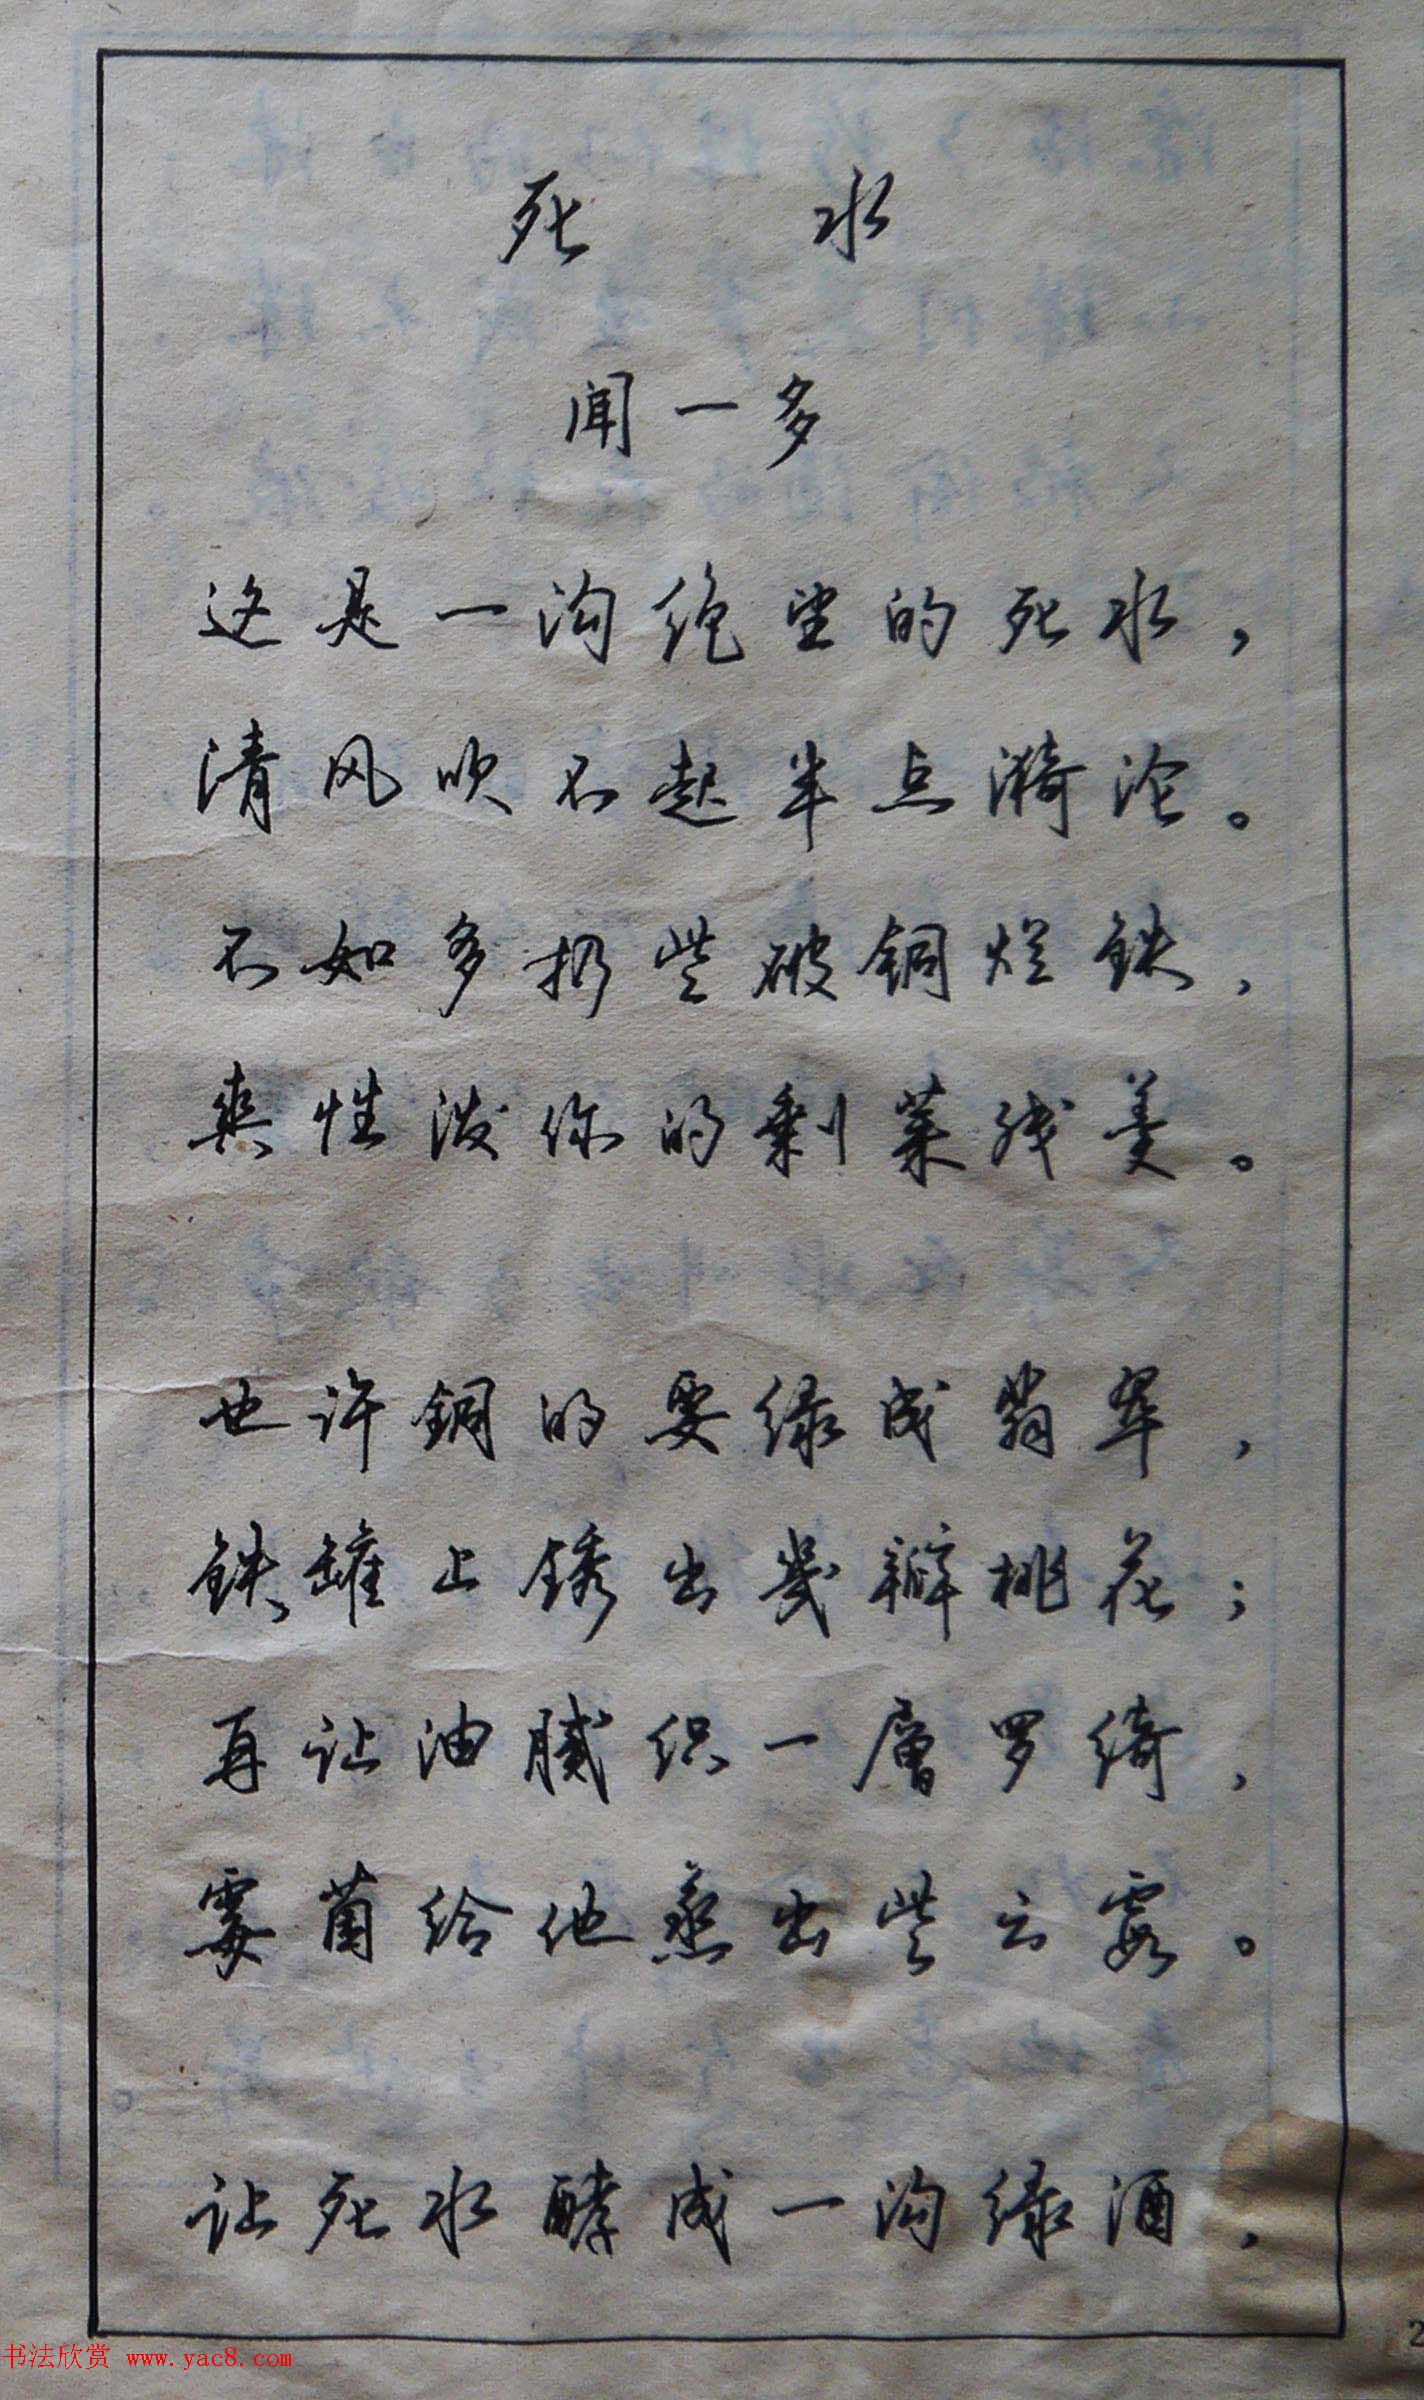 死水
闻一多
这是一沟绝望的死水，
清风吹不起半点漪沦。
不如多扔些破铜烂铁，
爽性泼你的剩菜残羹。
也许铜的要绿成翡翠，
铁罐上锈出几瓣桃花；
再让油腻织一层罗绮，
霉菌给他蒸出些云霞。
让死水酵成一沟绿酒，
书法欣赏 www.yac8.com
2